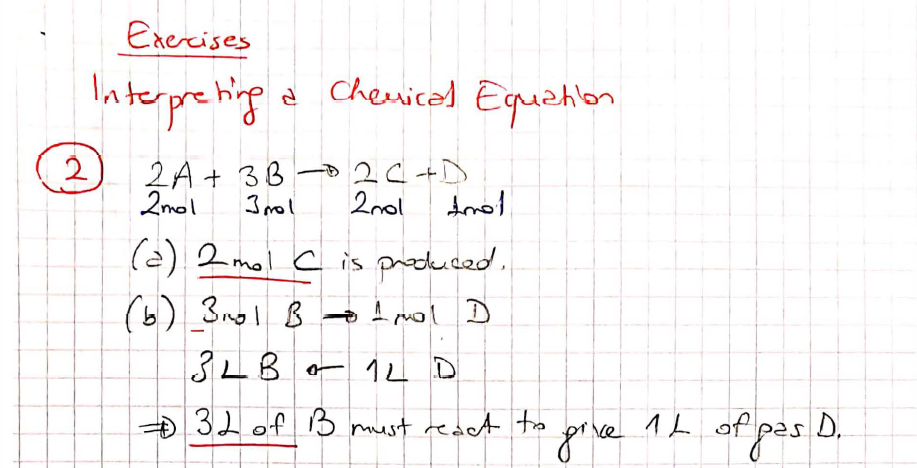 Exercises
Interpreting a Chemical Equation
2 2A + 3B → 2C + D
2mol 3mol 2mol 1mol
(a) 2mol C is produced.
(b) 3mol B → 1mol D
3L B ← 1L D
⇒ 3L of B must react to give 1L of gas D.